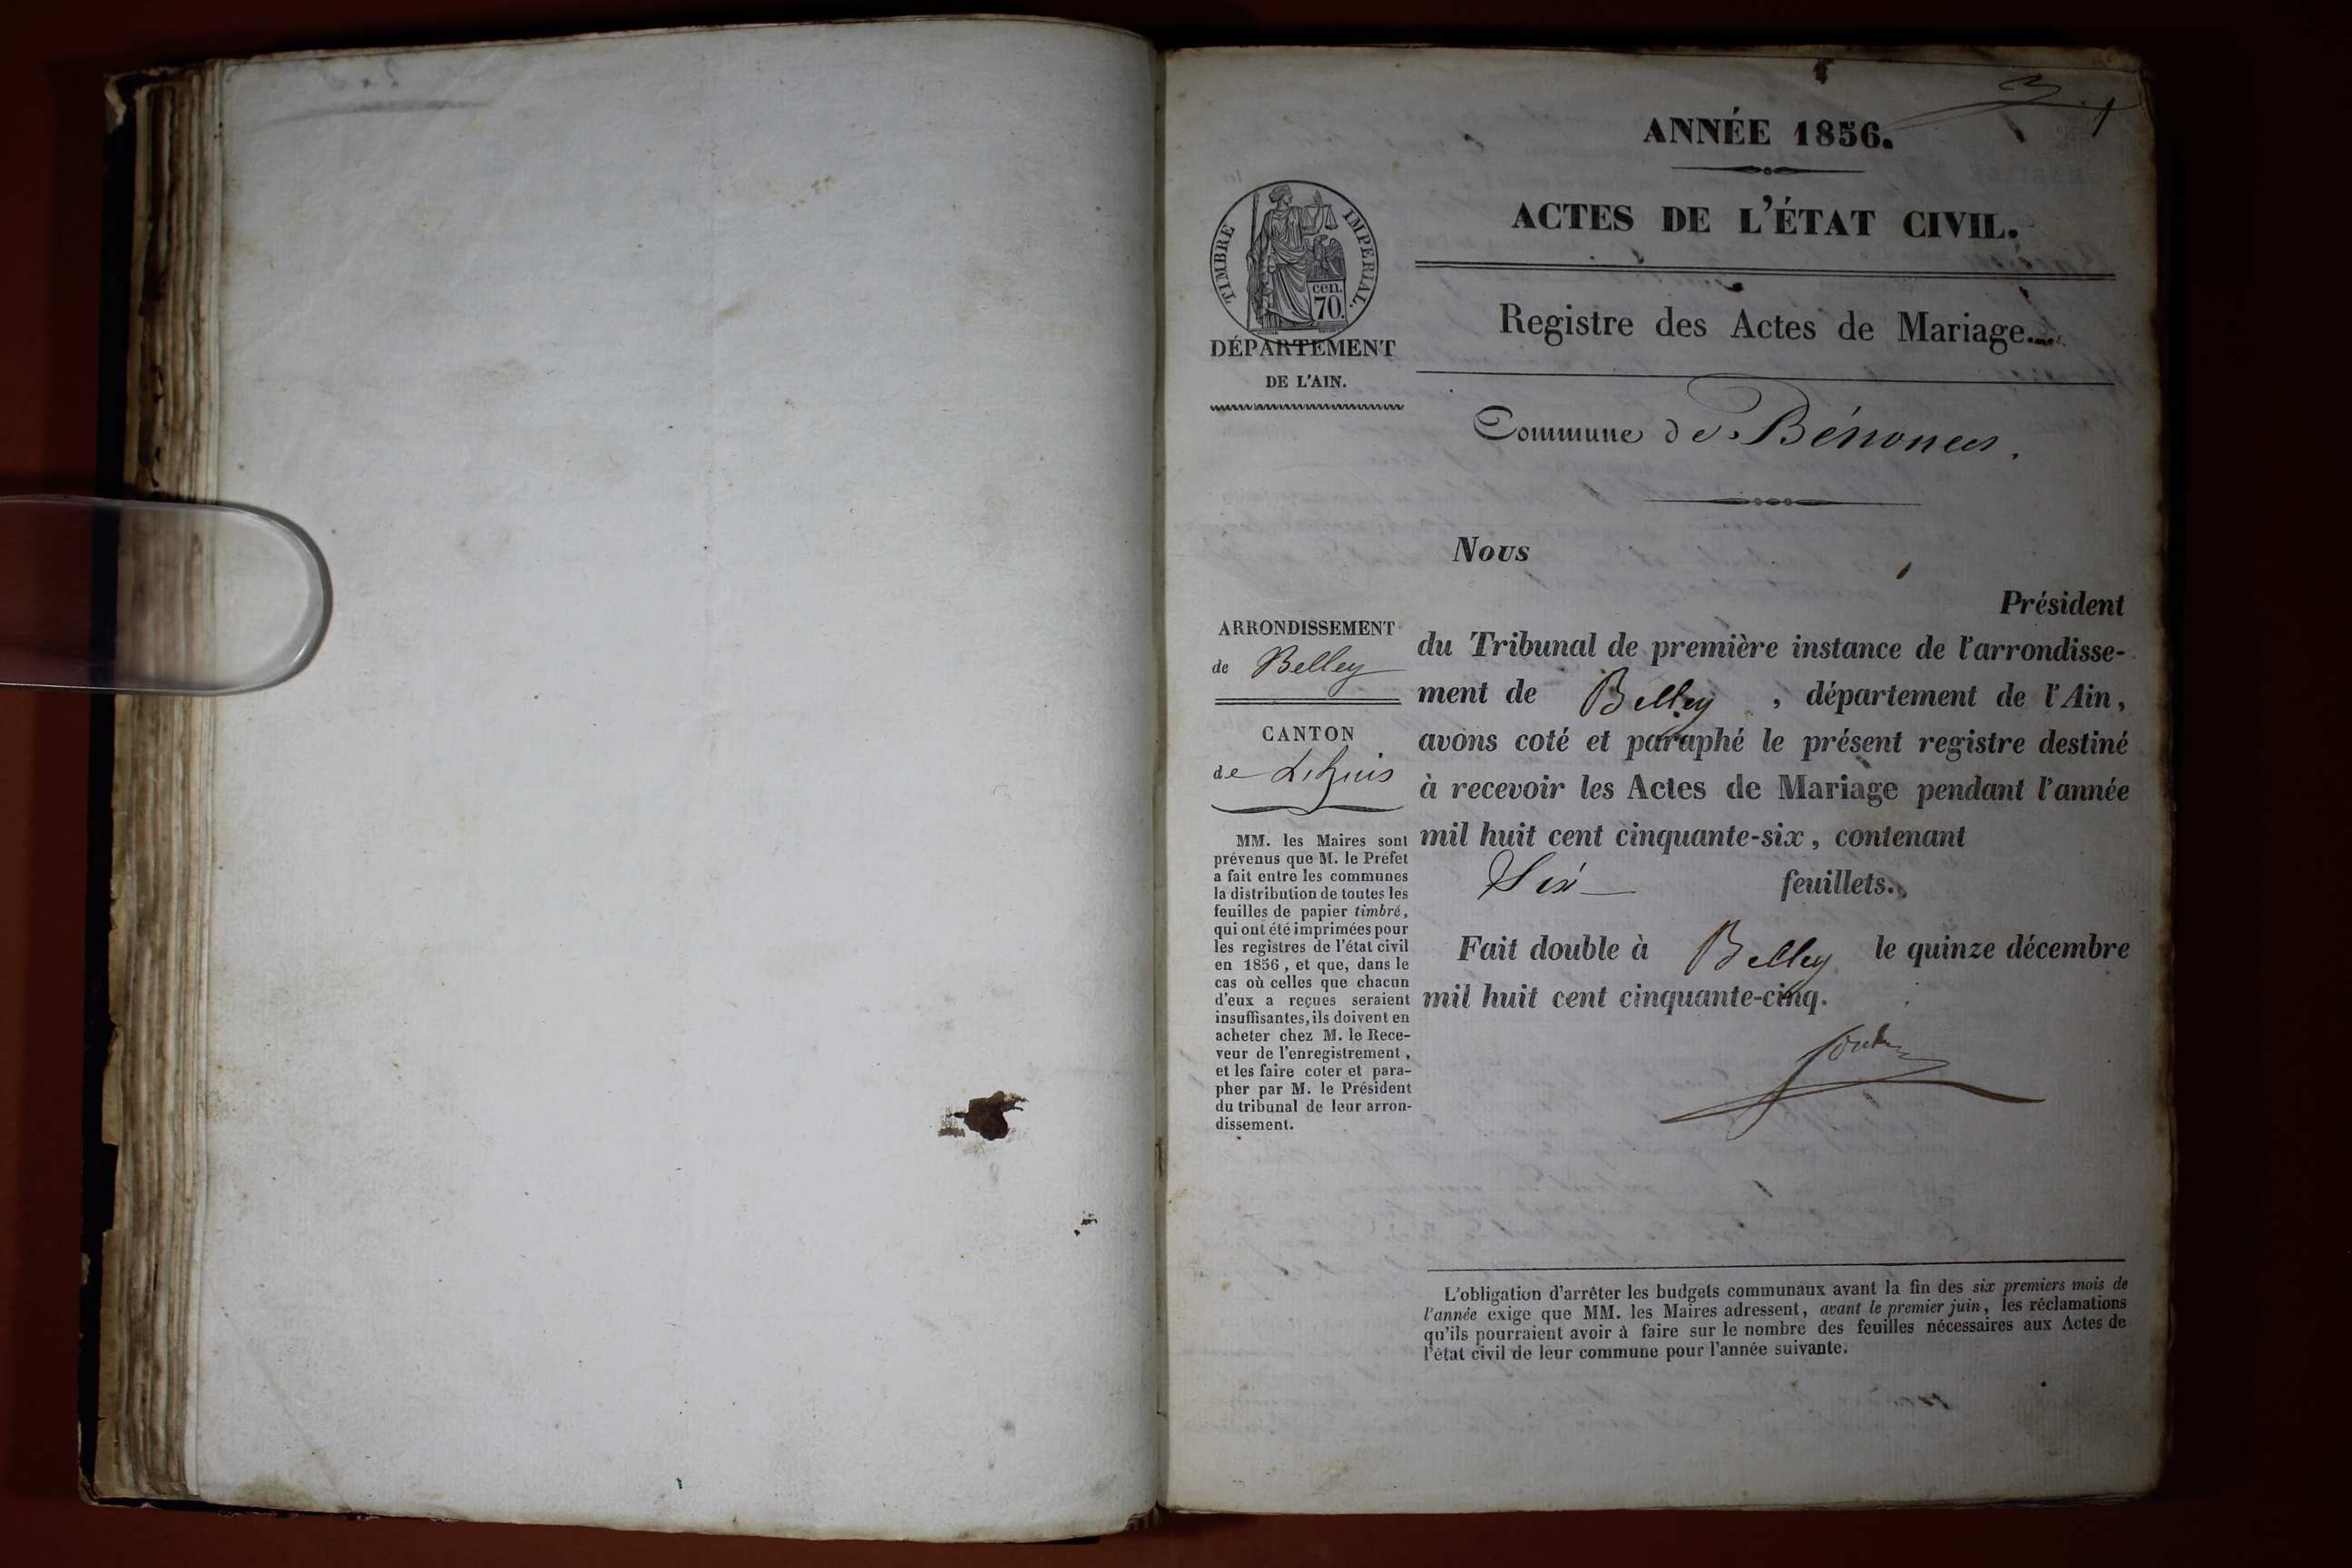 ANNÉE 1856.
ACTES DE L'ÉTAT CIVIL.
Registre des Actes de Mariage.
Commune de Bénonces.
TIMBRE IMPÉRIAL.
cen.
70.
DÉPARTEMENT
DE L'AIN.
ARRONDISSEMENT
de Belley
CANTON
de Lhuis
MM. les Maires sont
prévenus que M. le Préfet
a fait entre les communes
la distribution de toutes les
feuilles de papier timbré,
qui ont été imprimées pour
les registres de l'état civil
en 1856, et que, dans le
cas où celles que chacun
d'eux a reçues seraient
insuffisantes, ils doivent en
acheter chez M. le Rece-
veur de l'enregistrement,
et les faire coter et para-
pher par M. le Président
du tribunal de leur arron-
dissement.
Nous
Président
du Tribunal de première instance de l'arrondisse-
ment de Belley, département de l'Ain,
avons coté et paraphé le présent registre destiné
à recevoir les Actes de Mariage pendant l'année
mil huit cent cinquante-six, contenant
Six feuillets.
Fait double à Belley le quinze décembre
mil huit cent cinquante-cinq.
L'obligation d'arrêter les budgets communaux avant la fin des six premiers mois de
l'année exige que MM. les Maires adressent, avant le premier juin, les réclamations
qu'ils pourraient avoir à faire sur le nombre des feuilles nécessaires aux Actes de
l'état civil de leur commune pour l'année suivante.